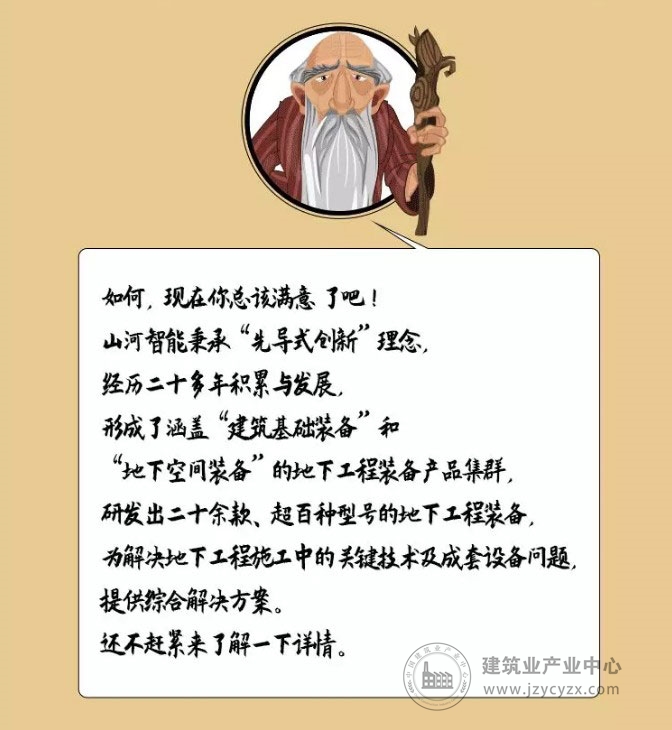 如何，现在你总该满意了吧！
山河智能秉承“先导式创新”理念，
经历二十多年积累与发展，
形成了涵盖“建筑基础装备”和
“地下空间装备”的地下工程装备产品集群，
研发出二十余款、超百种型号的地下工程装备，
为解决地下工程施工中的关键技术及成套设备问题，
提供综合解决方案。
还不赶紧来了解一下详情。
中国建筑业产业中心
建筑业产业中心
www.jzycyzx.com